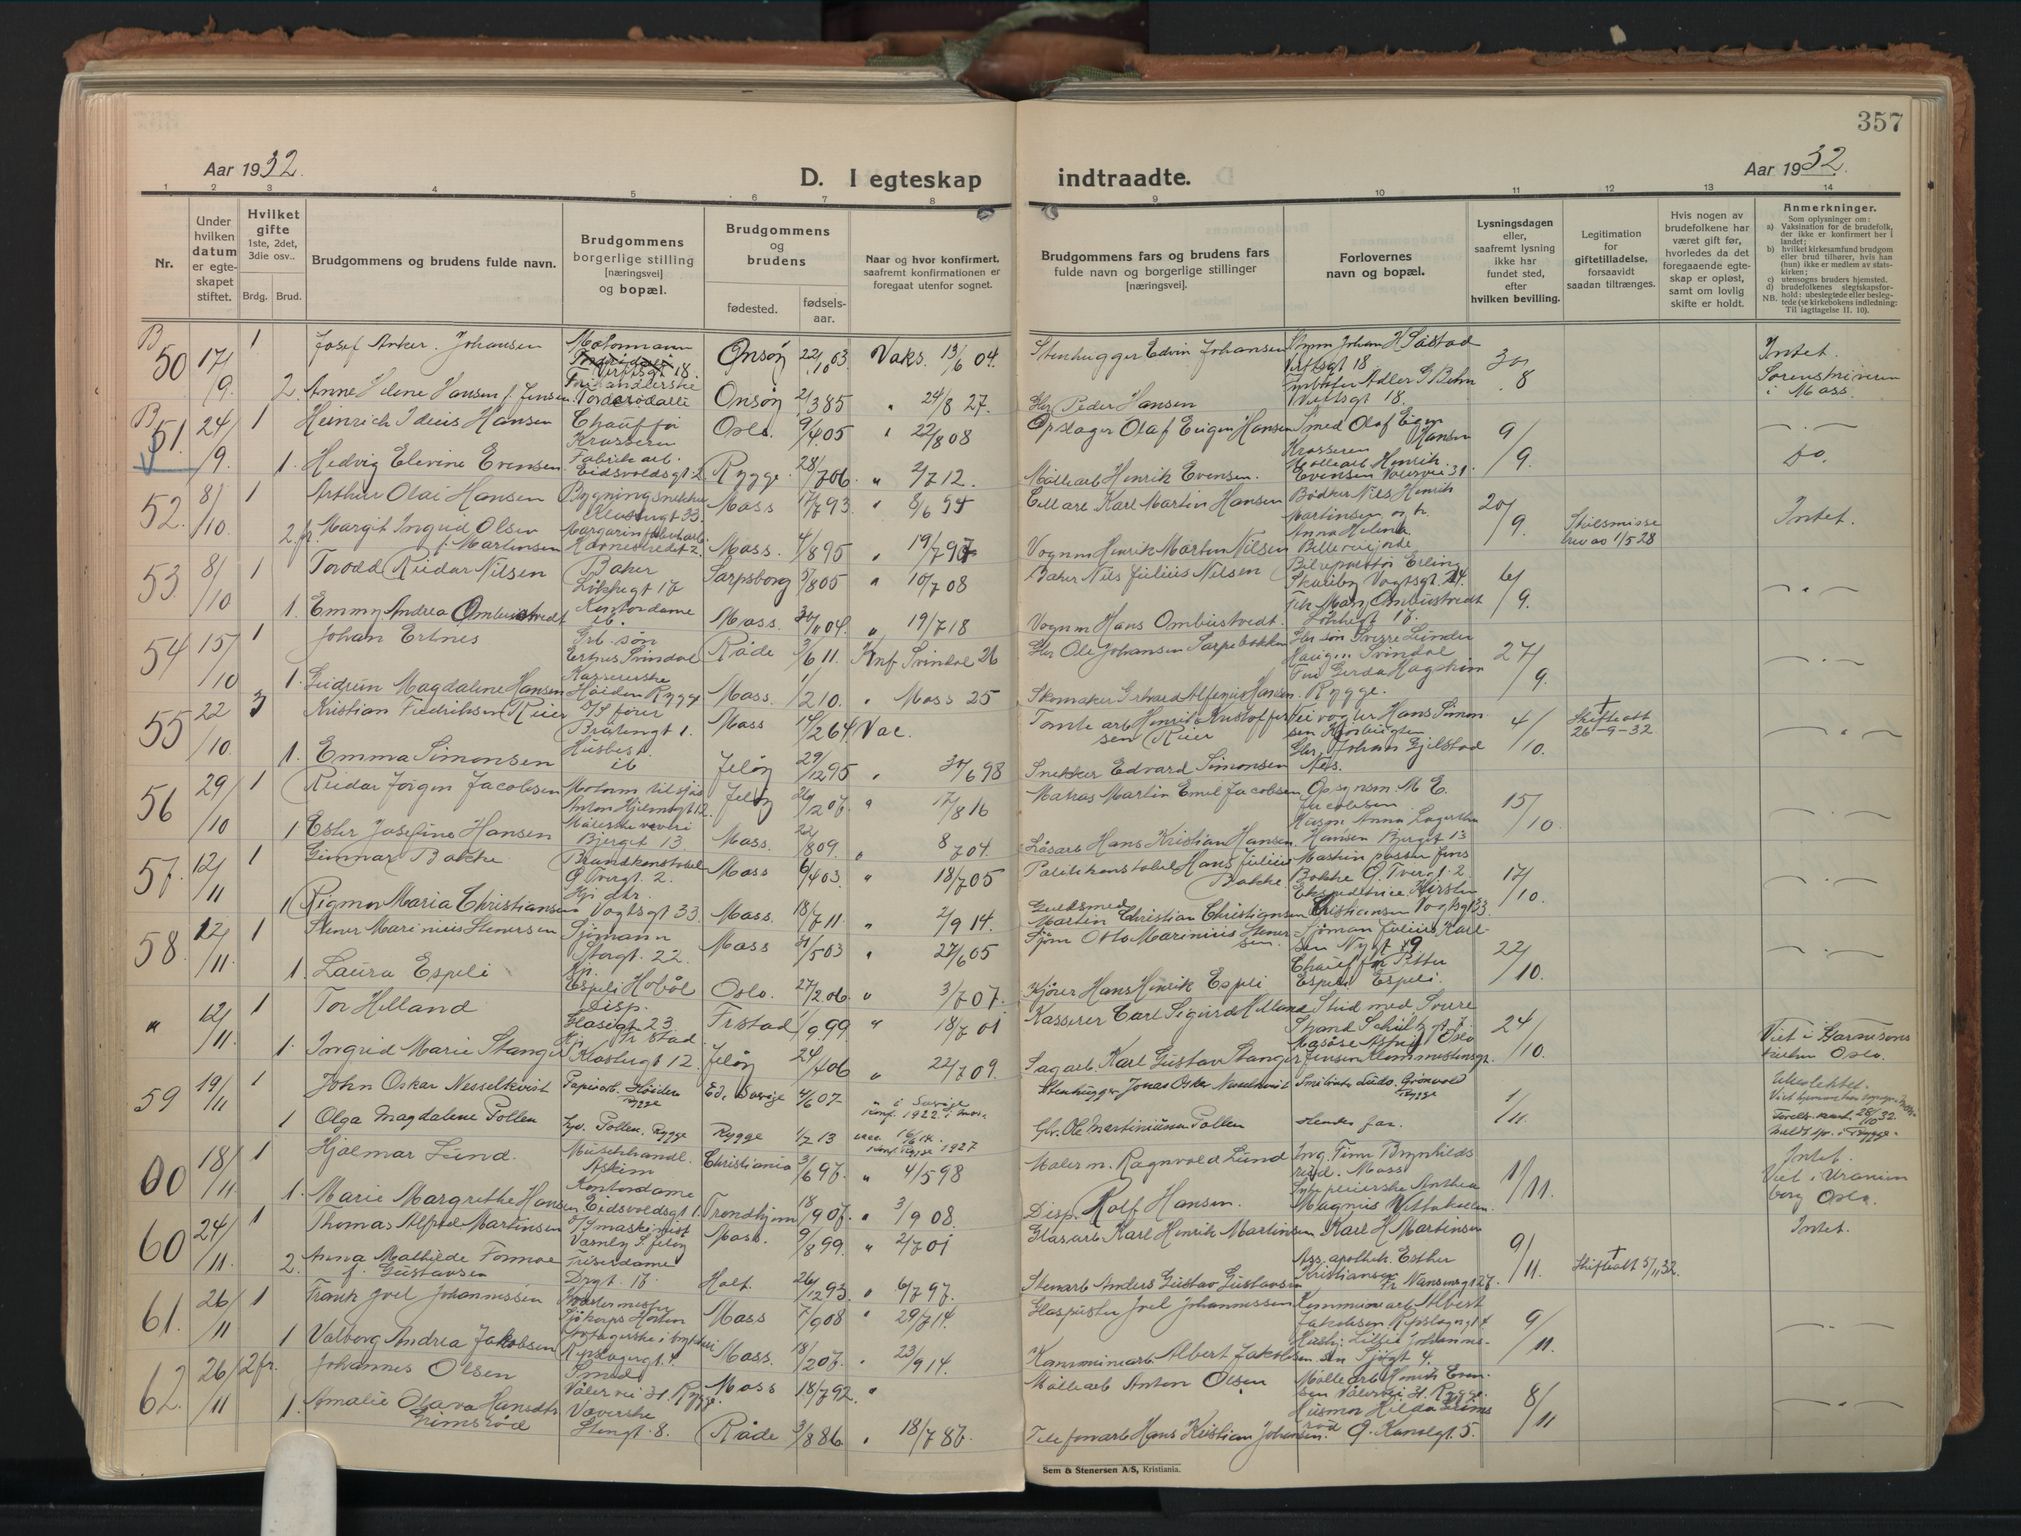 357
Aar 1932.
D. I egteskap indtraadte.
Aar 1932.
1 2 3 4 5 6 7 8 9 10 11 12 13 14
Nr.
Under hvilken datum er egteskapet stiftet.
Hvilket gifte
1ste, 2det, 3die osv..
Brdg. Brud.
Brudgommens og brudens fulde navn.
Brudgommens borgerlige stilling [næringsvei] og bopæl.
Brudgommens og brudens
fødested.
fødselsaar.
Naar og hvor konfirmert, saafremt konfirmationen er foregaat utenfor sognet.
Brudgommens fars og brudens fars fulde navn og borgerlige stillinger [næringsvei].
Forlovernes navn og bopæl.
Lysningsdagen eller, saafremt lysning ikke har fundet sted, efter hvilken bevilling.
Legitimation for giftetilladelse, forsaavidt saadan tiltrænges.
Hvis nogen av brudefolkene har været gift før, hvorledes da det foregaaende egteskap er opløst, samt om lovlig skifte er holdt.
Anmerkninger.
Som oplysninger om:
a) Vaksination for de brudefolk, der ikke er konfirmert her i landet;
b) hvilket kirkesamfund brudgom eller brud tilhører, hvis han (hun) ikke er medlem av statskirken;
c) utensogns bruders hjemsted.
d) brudefolkenes slegtskapsforhold: ubeslegtede eller beslegtede (se kirkebokens indledning: Til iagttagelse II. 10).
NB.
B 50 17/9. 1 Josef Anker Johansen Motormann Verftsgt 18. Onsøy 22/10 03 Vaks. 13/6 04. Stenhugger Edvin Johansen Verftsgt 18 30/8 Intet.
2. Anne Helene Hansen f. Jensen Onsøy 2/3 85 " 24/8 27. Gbr Peder Hansen Verftsgt 18. Sorenskriveren i Moss
B 51. 24/9. 1 Heinrich Ideus Hansen Chauffør Krosseren Oslo. 9/4 05 " 22/8 08 Opslager Olaf Eugen Hansen Smed Olaf Eugen Hansen Krosseren 9/9.
1. Hedvig Elevine Evensen Fabrik arb. Eidsvoldsgt. 2 Rygge 28/7 06. " 2/7 12. Møllearb Henrik Evensen. Møllearb Henrik Evensen Vålervei 31. do.
52. 8/10. 1 Arthur Olai Hansen Bygningssnekker Klostergt 33. Moss 17/7 93 " 8/6 94 Karl Martin Hansen Bødker Nils Henrik Martinsen og fr. 20/9 Skilsmisse brev av 1/5 28 Intet.
2 fr. Margit Ingrid Olsen f. Martinsen Moss. 4/8 95 " 19/7 97 Vognm Henrik Martin Nilsen Anna Helena
53 8/10 1 Torodd Reidar Nilsen Baker Løkkegt 17 Sarpsborg 5/8 05 " 10/7 08 Baker Nils Julius Nilsen Bilreparatør Erling Skauby Vogtsgt. 24. 6/9.
1. Emmy Andrea Ombustvedt Kontordame ib. Moss. 30/11 04. " 19/7 18 Vognm Hans Ombustvedt. Frk Mary Ombustvedt Løkkegt 17.
54 15/10 1 Johan Ertnes Grb. søn Ertnes Svindal Råde 3/6 11. Knf Svindal 26 Gbr Ole Johansen Sarpebakken Gbr søn Sverre Lunder Haugen Svindal 27/9.
1. Gudrun Magdalene Hansen Kassererske Høiden Rygge Moss. 1/2 10. " Moss 25 Skomaker Gerhard Alfenius Hansen. Rygge.
55 22/10. 3 Kristian Fredriksen Reier Bråtengt 1. Moss 14/2 64 Vac. Tomtearb Henrik Kristoffersen Reier Veivogter Hans Simonsen Krosbugten 4/10. † Skifteatt 26-9-32
1. Emma Simonsen Husbest. ib Jeløy 29/12 95 " 30/6 98 Snekker Edvard Simonsen Gbr. Johan Gjelstad Nes.
56 29/10 1 Reidar Jørgen Jacobsen Motorm. tilsjøs Anton Hjelmsgt 12. Jeløy 26/2 07. " 17/8 16 Matros Martin Emil Jacobsen Opsynsm M E. Jacobsen 15/10.
1 Ester Josefine Hansen Bjergt 13. Moss. 22/8 09. " 8/7 04. Låsarb Hans Kristian Hansen. Husm Anna Lagertha Hansen Bjergt 13
57. 12/11 1 Gunnar Bakke Brandkonstabel Ø Tvergt. 2. Moss 6/4 03. " 18/7 05 Politikonstabel Hans Julius Bakke Maskinpasser Jens Bakke Ø. Tvergt. 2. 17/10.
1 Rigmor Maria Christiansen Hj. dtr. Vogtsgt 33. Moss. 18/7 11. " 2/9 14. Guldsmed Martin Christian Christiansen Ekspeditrice Kirsten Christiansen Vogtsgt 33.
58. 12/11. 1 Stener Marinius Stenersen Sjømann Storgt. 22. Moss 31/5 03 " 27/6 05 Sjøm Otto Marinius Stenersen. Sjøman Julius Karlsen Nygt 49 22/10.
1. Laura Espeli Espeli Hobøl Oslo. 27/2 06. " 3/7 07. Kjører Hans Henrik Espeli Chauffør Petter Espeli Espeli.
" 12/11. 1 Tor Helland Disp. Glasgt 23 Fr.stad Frstad 1/9 99 " 18/7 01 Kasserer Carl Sigurd Helland Stud med Sverre 24/10. Viet i Garnisonskirken Oslo.
1. Ingrid Marie Stanger Klostergt 12. Jeløy 24/4 06 " 22/7 09. Sagarb. Karl Gustav Stanger
59 19/11 1 John Oskar Nesselkvist Papirarb. Høiden Rygge Ed, Sverige 4/6 07 " i Sverige konf. 1922 i Moss Stenhugger Jonas Oskar Nesselkvist Grønvold Rygge 1/11. Ubeslektet.
1 Olga Magdalene Pollen Pollen. Rygge Rygge 4/2 13 konf. Rygge 1927 Gbr. Ole Martinius Pollen hendes far.
60 18/11 1 Hjalmar Lund. Musikhandl. Askim Christiania 3/6 97. " 4/5 98 Maler m. Ragnvald Lund Ing. Finn Brynhildsrud. Moss 1/11. Intet.
1. Marie Margrethe Hansen Kontordame Eidsvoldsgt 1. Trondhjem 18/9 07. " 3/9 08. Disp. Rolf Hansen. Viet i Uranienborg Oslo.
60 24/11. 1 Thomas Alfred Martinsen Moss. 9/8 99. " 2/7 01 Glasarb Karl Henrik Martinsen Karl H Martinsen 9/11 † Skifteatt 5/11 32. Intet.
2. Anna Mathilde Formoe f. Gustavsen Friserdame Drgt. 17. Holt. 26/12 93. " 6/7 97. Stenarb Anders Gustav Gustavsen Ass. apothek. Esther Kristiansen Fr. Nansensgt 27.
61. 26/11 1 Frank Joel Johannessen Sjøkorps Horten Moss 7/9 08 " 29/7 14 Glaspuster Joel Johannessen Kommunearb Albert Jakobsen Repslagergt 4 9/11.
1 Valborg Andrea Jakobsen Repslagergt. 4. Moss. 18/2 07. " 23/9 14. Kommunearb. Albert Jakobsen Sjøgt 4.
62. 26/11 2 fr. Johannes Olsen Smed Vålervei 31. Rygge Moss 18/7 92. " Møllearb Anton Olsen Møllearb Henrik Evensen Vålervei 31. Rygge. 8/11
1. Amalie Olava Hansdtr Grimsrød Væverske Stengt. 8. Råde 3/8 86. " 18/7 87. Telefonarb Hans Kristian Johansen. Husmor Hilda Grimsrød Ø. Kanalgt. 5.
Sem & Stenersen A/S, Kristiania.